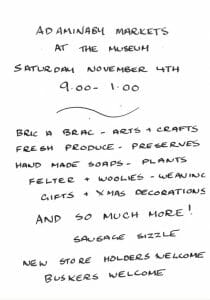 ADAMINABY MARKETS
AT THE MUSEUM
SATURDAY NOVEMBER 4TH
9.00 - 1.00
BRIC A BRAC - ARTS + CRAFTS
FRESH PRODUCE - PRESERVES
HAND MADE SOAPS - PLANTS
FELTER + WOOLIES - WEAVING
GIFTS + XMAS DECORATIONS
AND SO MUCH MORE!
SAUSAGE SIZZLE
NEW STORE HOLDERS WELCOME
BUSKERS WELCOME